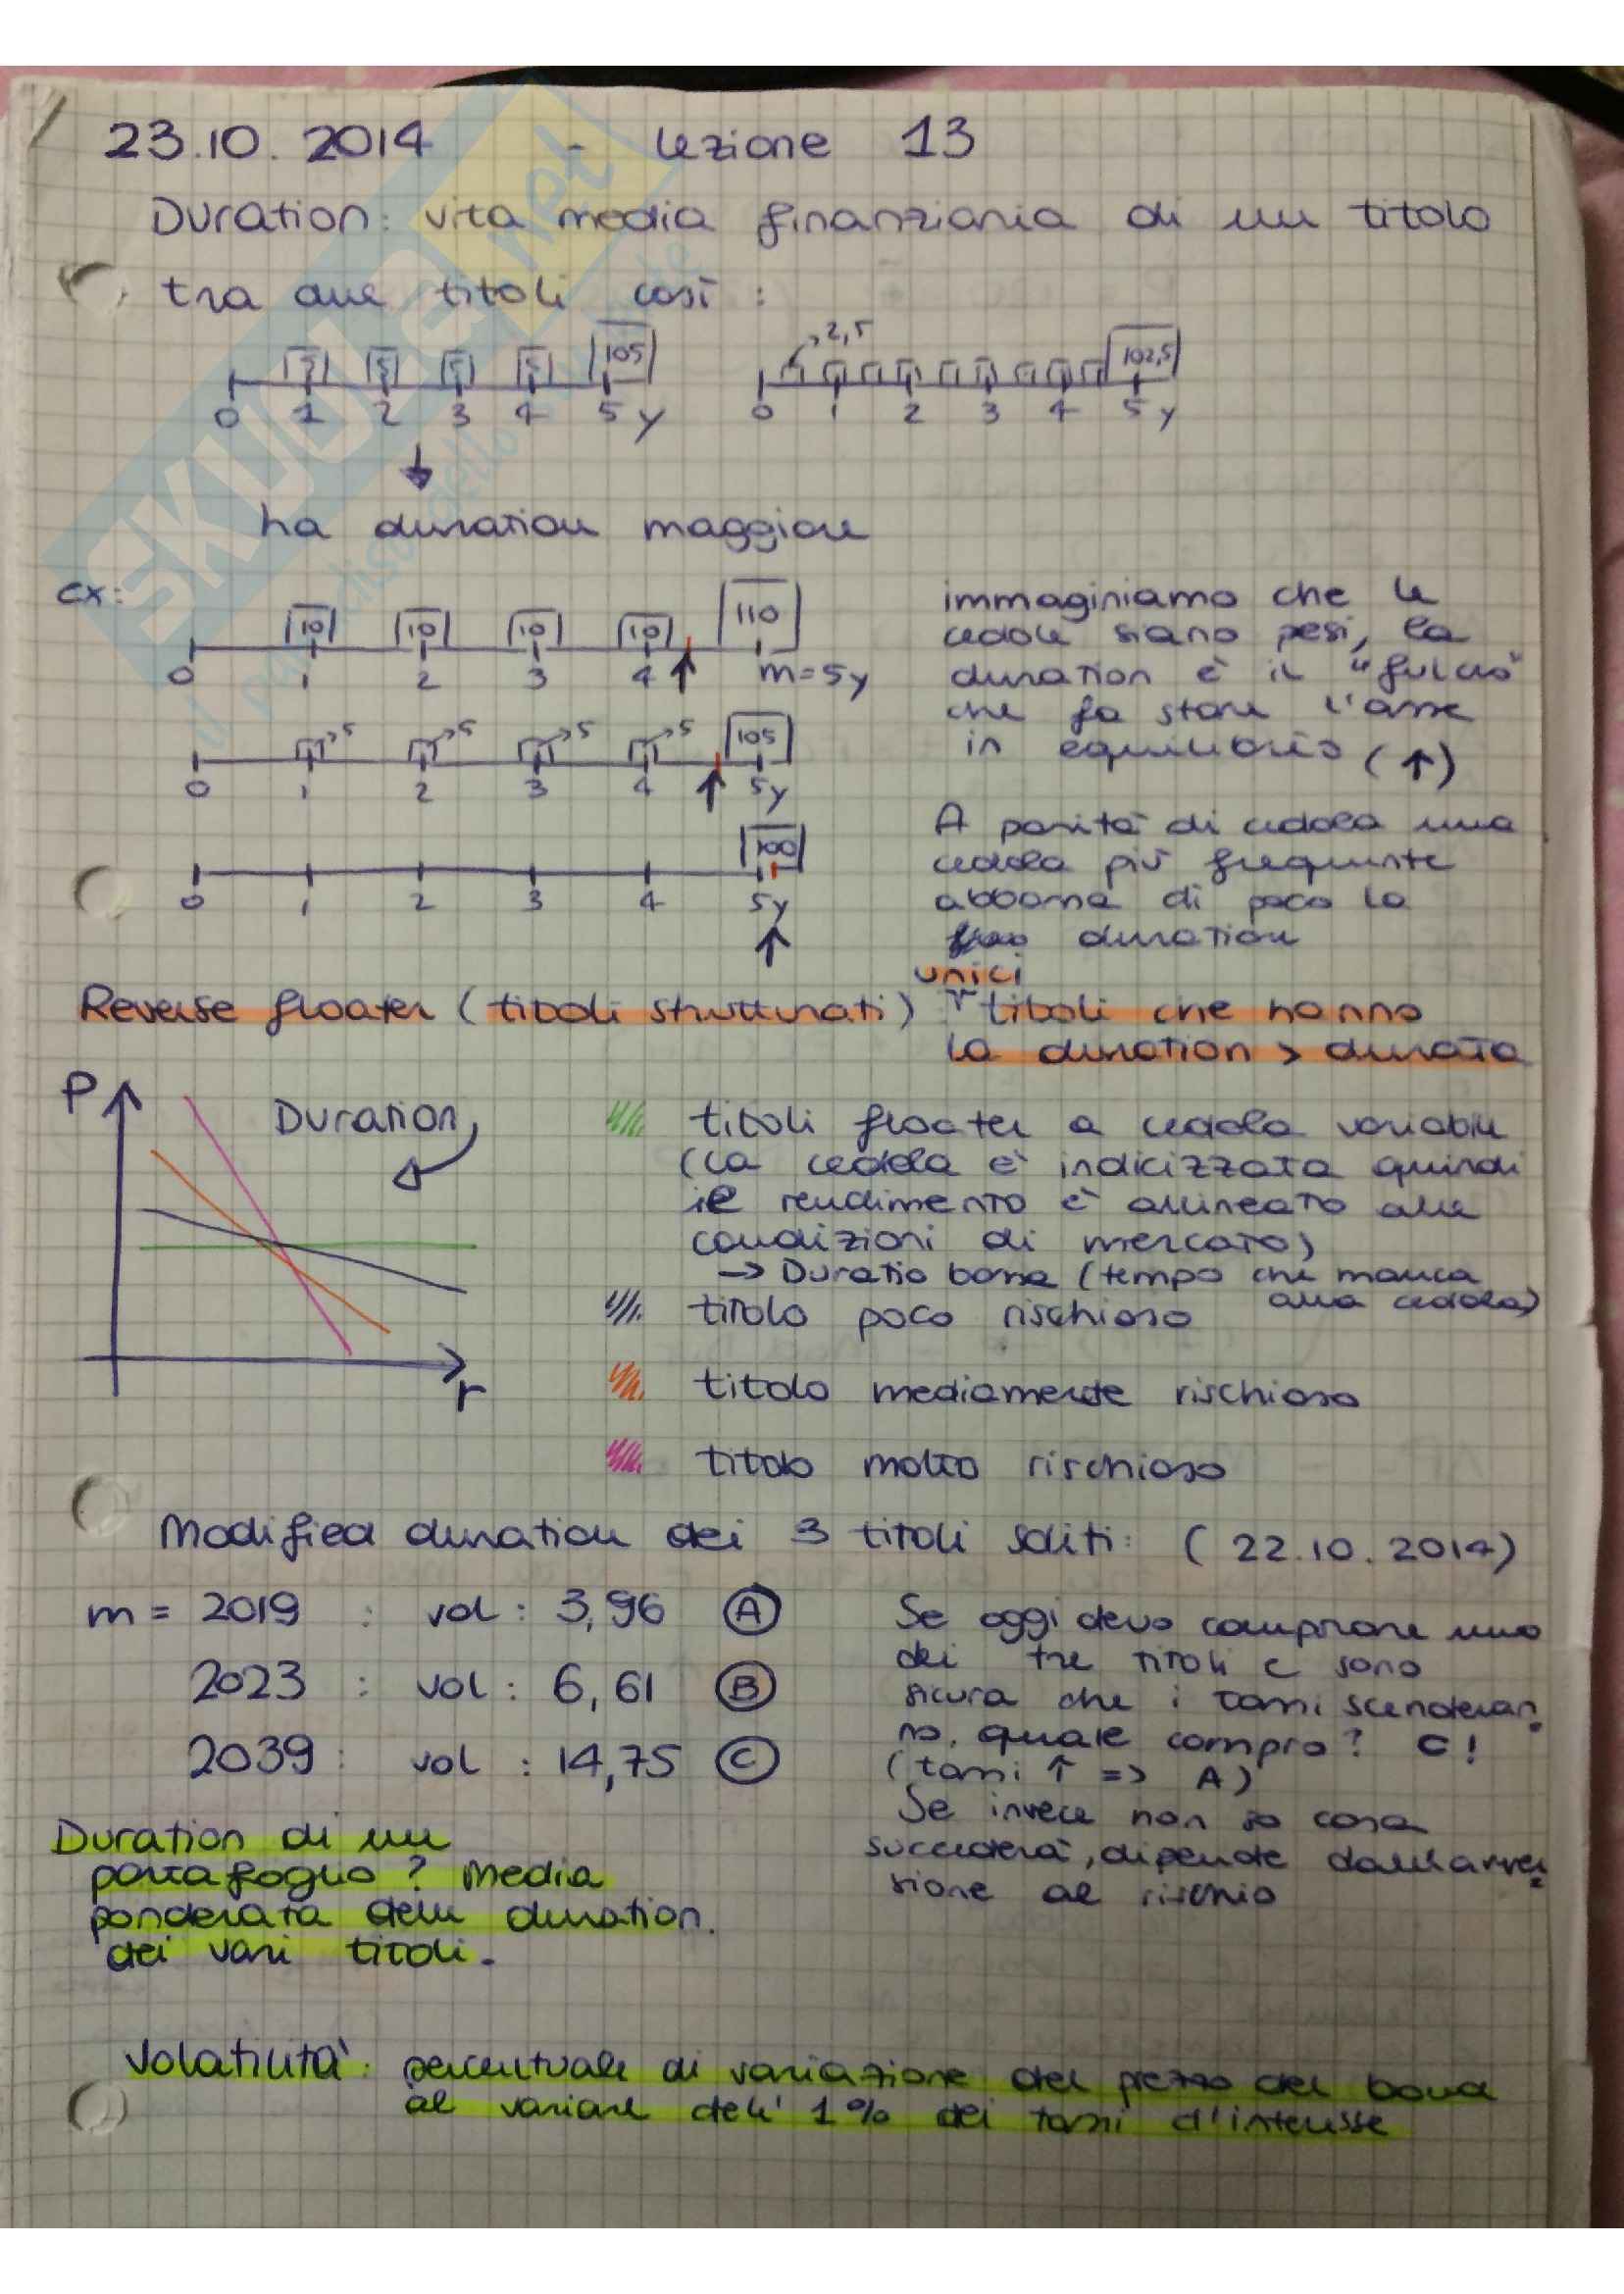 23.10.2014 - lezione 13
Duration: vita media finanziaria di un titolo
tra due titoli così:
5 5 5 5 105
0 1 2 3 4 5 y
2,5 102,5
0 1 2 3 4 5 y
ha duration maggiore
ex:
10 10 10 10 110
0 1 2 3 4 m=5y
5 5 5 5 105
0 1 2 3 4 5y
100
0 1 2 3 4 5y
immaginiamo che le
cedole siano pesi, la
duration è il "fulcro"
che fa stare l'asse
in equilibrio (↑)
A parità di cedola una
cedola più frequente
abbassa di poco la
duration
Reverse floater (titoli strutturati) unici titoli che hanno
la duration > durata
P
Duration
r
titoli floater a cedola variabile
(la cedola è indicizzata quindi
il rendimento è allineato alle
condizioni di mercato)
→ Duratio bassa (tempo che manca
alla cedola)
titolo poco rischioso
titolo mediamente rischioso
titolo molto rischioso
Modified duration dei 3 titoli soliti: (22.10.2014)
m = 2019 : vol : 3,96 A
2023 : vol : 6,61 B
2039 : vol : 14,75 C
Se oggi devo comprare uno
dei tre titoli e sono
sicura che i tassi scenderan
no, quale compro? C!
(tassi ↑ => A)
Se invece non so cosa
succederà, dipende dall'avver
sione al rischio
Duration di un
portafoglio? Media
ponderata delle duration
dei vari titoli.
Volatilità: percentuale di variazione del prezzo del bond
al variare dell' 1% dei tassi d'interesse
SKUOLA.net
il paradiso dello